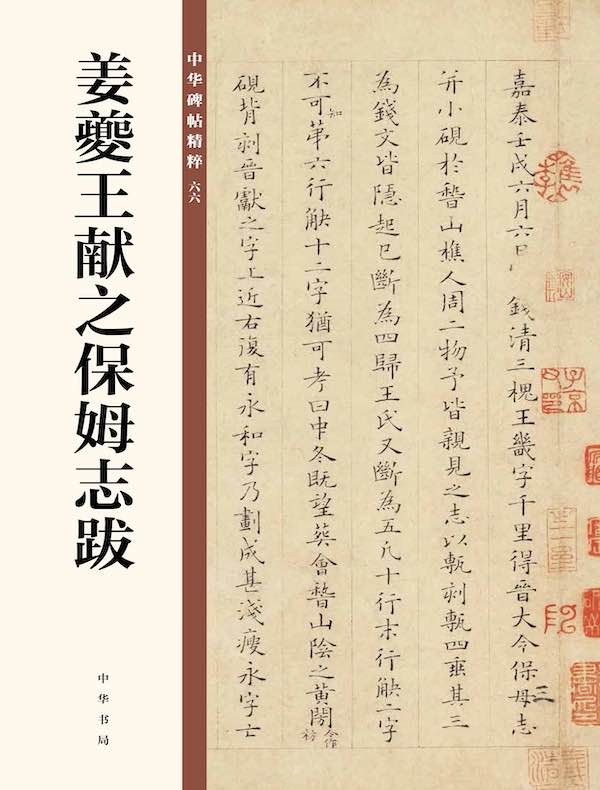 姜夔王献之保姆志跋
中华书局
中华碑帖精粹 六六
嘉泰壬戌六月六日 錢清三槐王畿字千里得晉大令保母志
并小硯於稽山樵人周二物予皆親見之志以甎刻甎四垂其三
為錢文皆隱起已斷為四歸王氏又斷為五凡十行末行缺二字
不可知苐六行缺十二字猶可考曰中冬既望葬會稽山陰之黃閍今作枋
硯背刻晉獻之字上近右復有永和字乃劃成甚淺瘦永字亡